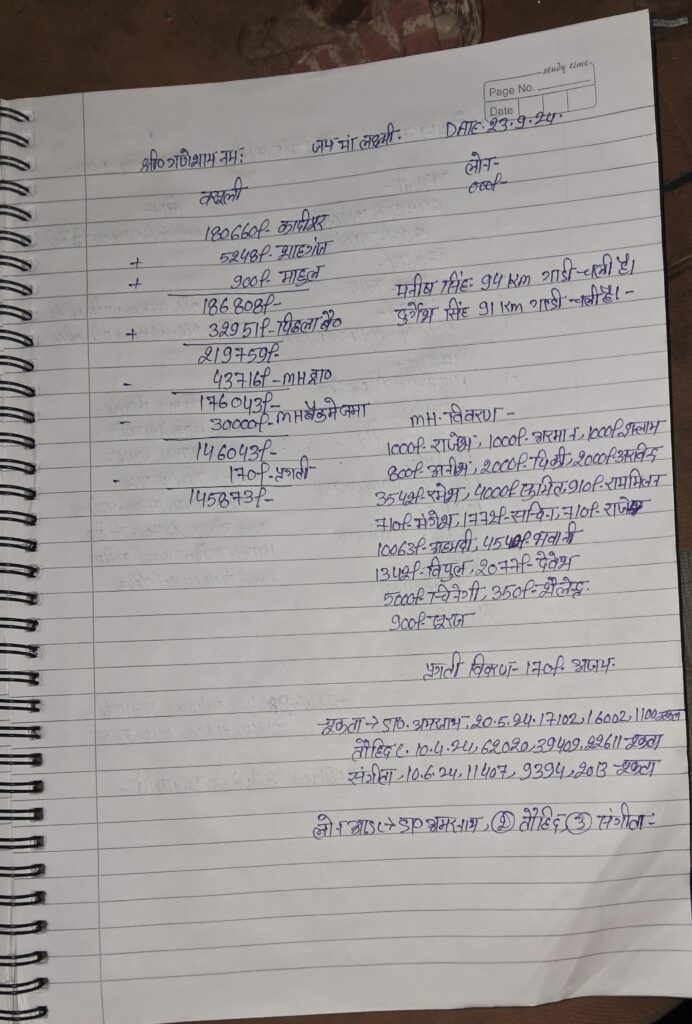 study time
Page No.
Date
श्री० गणेशाय नमः जय मां लक्ष्मी. DATE. 23.9.24.
वसूली लोन-
000/-
180660/- कादीपुर
+ 5248/- शाहगंज
+ 900/- माहुल
186808/-
मनीष सिंह: 94 Km गाडी चली है।
+ 32951/- पिछला बै०
दुर्गेश सिंह 91 Km गाडी चली है।-
219759/-
- 43716/- MH द्वा०
176043/-
- 30000/- MH बैंक मे जमा
MH. विवरण -
146043/-
1000/- राजेश, 1000/- अरमान, 1000/-
- 170/-
800/- अनीश, 2000/- 2000/- अरविन्द
145873/-
354/- रमेश, 4000/- 910/- राममिलन
710/- मंगेश, 1772/- सचिन, 710/- राजेश
10063/- 454/- भवानी
1342/- विपुल, 2077/- देवेश
5000/- 350/- शैलेन्द्र
900/- सूरज
विवरण- 170/- अजय.
चुकता → डा०. अमरनाथ. 20.5.24. 17102, 16002, 1100 चुकता
तौहिद 10.4.24, 62020, 39409, 22611 चुकता
संगीता, 10.6.24, 11407, 9394, 2013 चुकता
लोन → डा० अमरनाथ, ② तौहिद ③ संगीता: